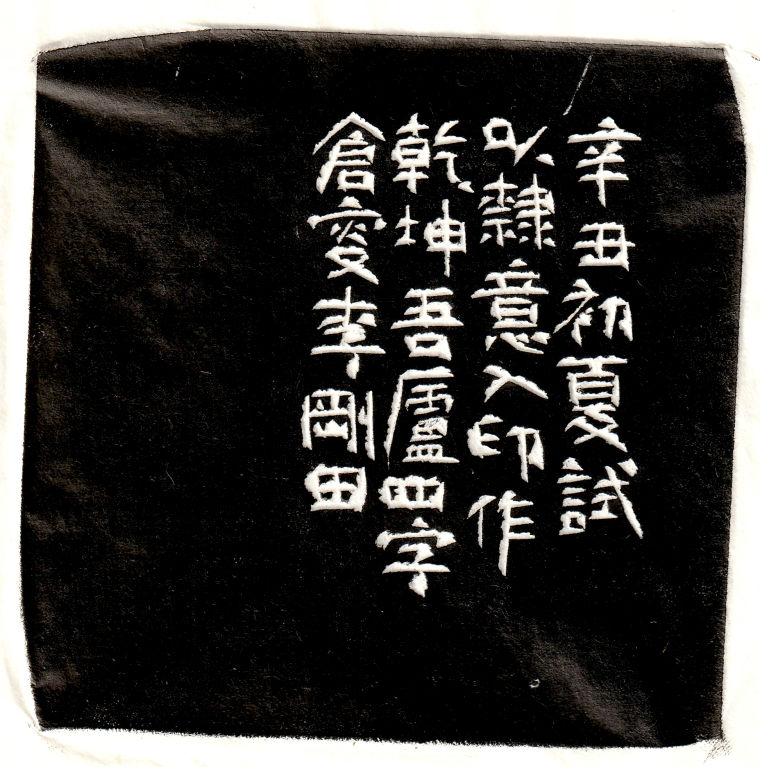 辛丑初夏試
以隸意入印作
乾坤吾廬四字
倉叜李剛田